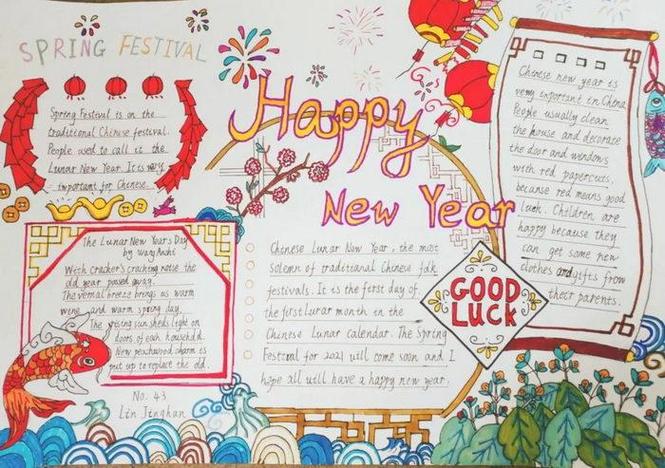 SPRING FESTIVAL
Spring Festival is on the
traditional Chinese festival.
People used to call it the
Lunar New Year. It is very
important for Chinese.
Happy
New Year
The Lunar New Year's Day
by Wang Anshi
With cracker's cracking noise the
old year passed away.
The vernal breeze brings us warm
wine and warm spring day.
The rising sun sheds light on
doors of each household.
New peachwood charm is
put up to replace the old.
No. 43
Lin Jinghan
Chinese Lunar New Year, the most
solemn of traditional Chinese folk
festivals. It is the first day of
the first lunar month in the
Chinese Lunar calendar. The Spring
Festival for 2021 will come soon and I
hope all will have a happy new year.
GOOD
LUCK
Chinese new year is
very important in China
People usually clean
the house and decorate
the door and windows
with red papercuts,
because red means good
luck. Children are
happy because they
can get some new
clothes and gifts from
their parents.